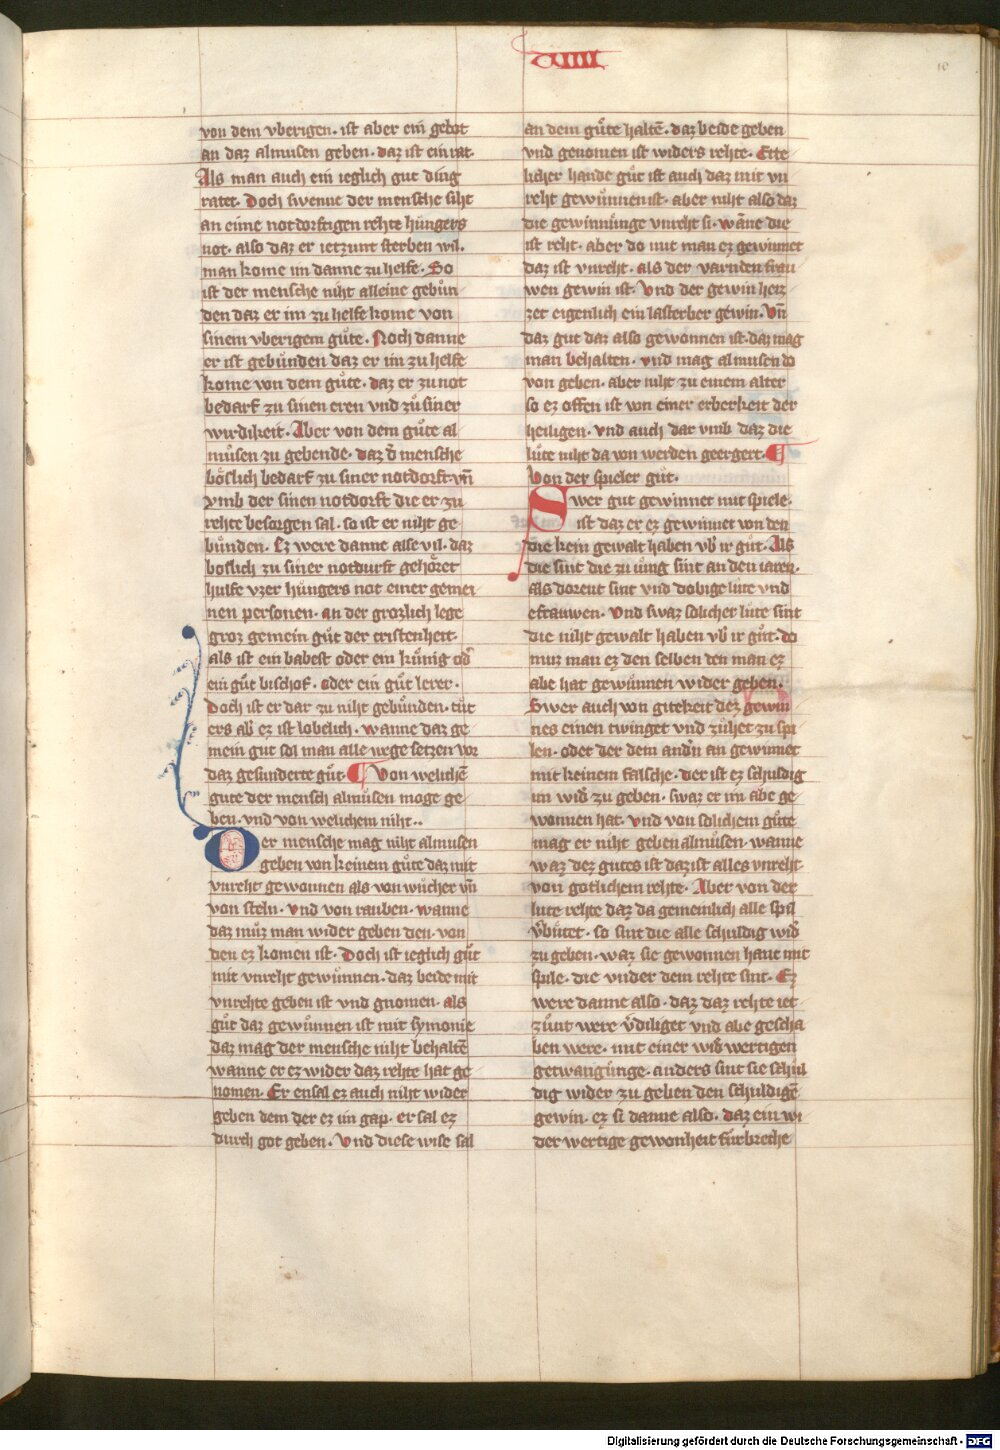 von dem vberigen. ist aber ein gebot
an daz almusen geben. daz ist ein rat.
Als man auch ein ieglich gut ding
ratet. Doch swenne der mensche siht
an eime notdorftigen rehte hungers
not. also daz er ietzunt sterben wil.
man kome im danne zu helfe. So
ist der mensche niht alleine gebůn
den daz er im zu helfe kome von
sinem vberigem gůte. Noch danne
er ist gebůnden daz er im zu helfe
kome von dem gůte. daz er zu not
bedarf zu sinen eren vnd zů siner
wirdikeit. Aber von dem gůte al
můsen zu gebende. daz d̄ mensche
bőslich bedarf zu siner notdorft vn̄
vmb der sinen notdorft die er zu
rehte besorgen sal. so ist er niht ge
bůnden. Ez were danne alse vil. daz
boslich zu siner notdurft gehőret
hulfe vzer hůngers not einer gemei
nen personen. an der grozlich lege
groz gemein gůt der cristenheit.
als ist ein babest oder ein kůnig od̄
ein gůt bischof. oder ein gůt lerer.
Doch ist er dar zu niht gebůnden. tůt
ers ab̄ ez ist lobelich. wanne daz ge
mein gut sol man alle wege setzen vor
daz gesunderte gůt. ¶ Von welichē
gute der mensch almůsen moge ge
ben. vnd von welichem niht..
Der mensche mag niht almusen
geben von keinem gůte daz mit
vnreht gewonnen als von wůcher vn̄
von steln. vnd von rauben. wanne
daz můz man wider geben den. von
den ez komen ist. Doch ist ieglich gůt
mit vnreht gewůnnen. daz beide mit
vnrehte geben ist vnd gnomen. als
gůt daz gewůnnen ist mit symonie
daz mag der mensche niht behaltē
wanne er ez wider daz rehte hat ge
nomen. Er ensal ez auch niht wider
geben dem der ez im gap. er sal ez
durch got geben. Vnd diese wise sal
an dem gůte haltē. daz beide geben
vnd genomen ist widers rehte. Ette
licher hande gůt ist auch daz mit vn
reht gewůnnen ist. aber niht also daz
die gewinnůnge vnreht si. wāne die
ist reht. aber do mit man ez gewinnet
daz ist vnreht. als der varnden frau
wen gewin ist. Vnd der gewin heiz
zet eigenlich ein lasterber gewin. Vn̄
daz gut daz also gewonnen ist. daz mag
man behalten. vnd mag almusen do
von geben. aber niht zu einem alter
so ez offen ist von einer erberkeit der
heiligen. vnd auch dar vmb daz die
lůte niht da von werden geergert. ¶
Von der spieler gůt.
Swer gut gewinnet mit spiele.
ist daz er ez gewinnet von den
die kein gewalt haben vb̄ ir gůt. Als
die sint die zu iůng sint an den iaren.
als doreht sint vnd dobige lute vnd
efrauwen. Vnd swaz solicher lute sint
die niht gewalt haben vb̄ ir gůt. do
muz man ez den selben den man ez
abe hat gewůnnen wider geben.
Swer auch von gitekeit dez gewin
nes einen twinget vnd zůhet zu spi
len. oder der dem andn̄ an gewinnet
mit keinem falsche. der ist ez schůldig
im wid̄ zu geben. swaz er im abe ge
wonnen hat. Vnd von solichem gůte
mag er niht geben almůsen. wanne
waz dez gutes ist daz ist alles vnreht
von gotlichem rehte. Aber von der
lute rehte daz da gemeinlich alle spil
v̄bůtet. so sint die alle schuldig wid̄
zu geben. waz sie gewonnen hant mit
spile. die vnder dem rehte sint. Ez
were danne also. daz daz rehte iet
zůnt were v̄diliget vnd abe gescha
ben were. mit einer wid̄wertigen
getwangůnge. anders sint sie schul
dig wider zu geben den schuldigē
gewin. ez si danne also. daz ein wi
der wertige gewonheit fůrbreche
Digitalisierung gefördert durch die Deutsche Forschungsgemeinschaft - DFG